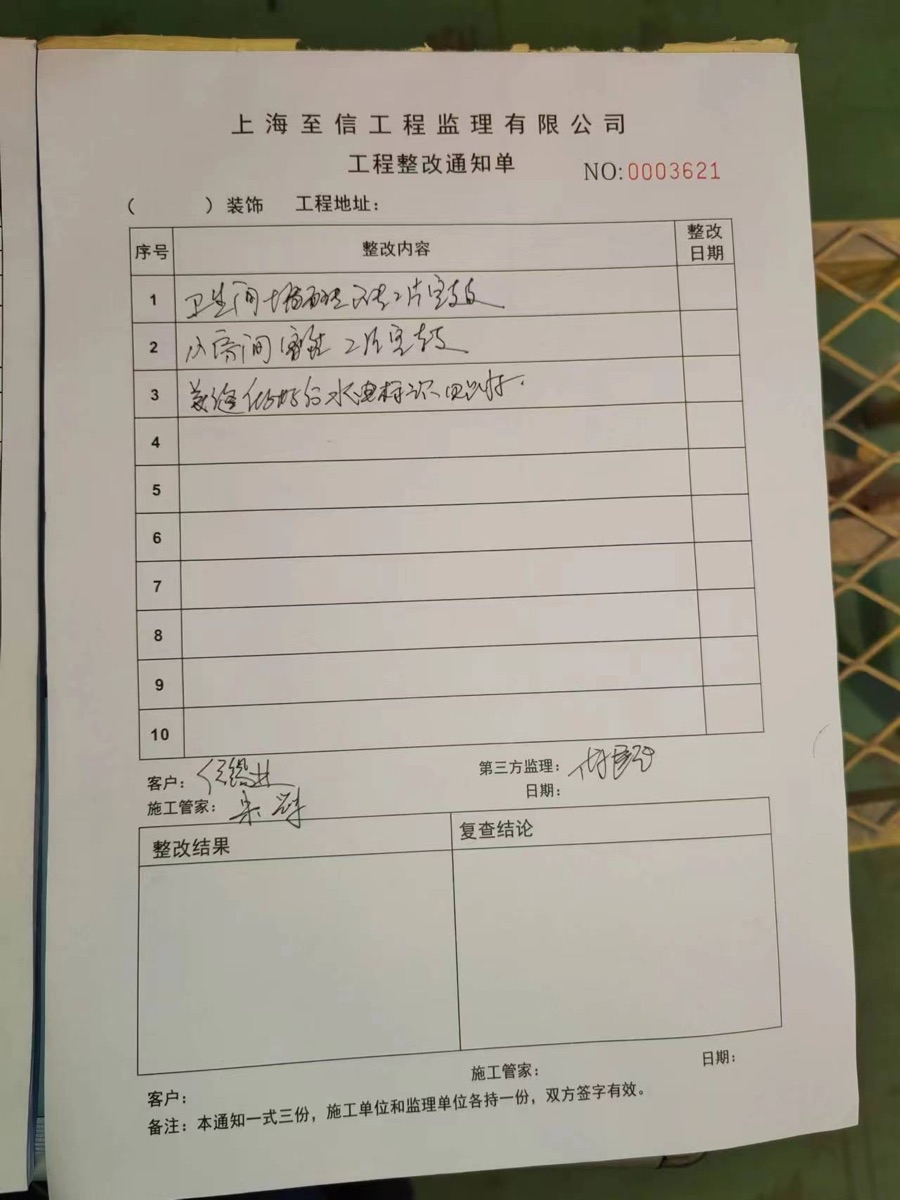 上海至信工程监理有限公司
工程整改通知单
NO:0003621
（ ）装饰 工程地址：
序号 整改内容 整改日期
1 卫生间墙砖 2片空鼓
2 小房间窗台 2片空鼓
3 美缝做好后水电标识
4
5
6
7
8
9
10
客户：
第三方监理：
施工管家：
日期：
整改结果 复查结论
客户： 施工管家： 日期：
备注：本通知一式三份，施工单位和监理单位各持一份，双方签字有效。